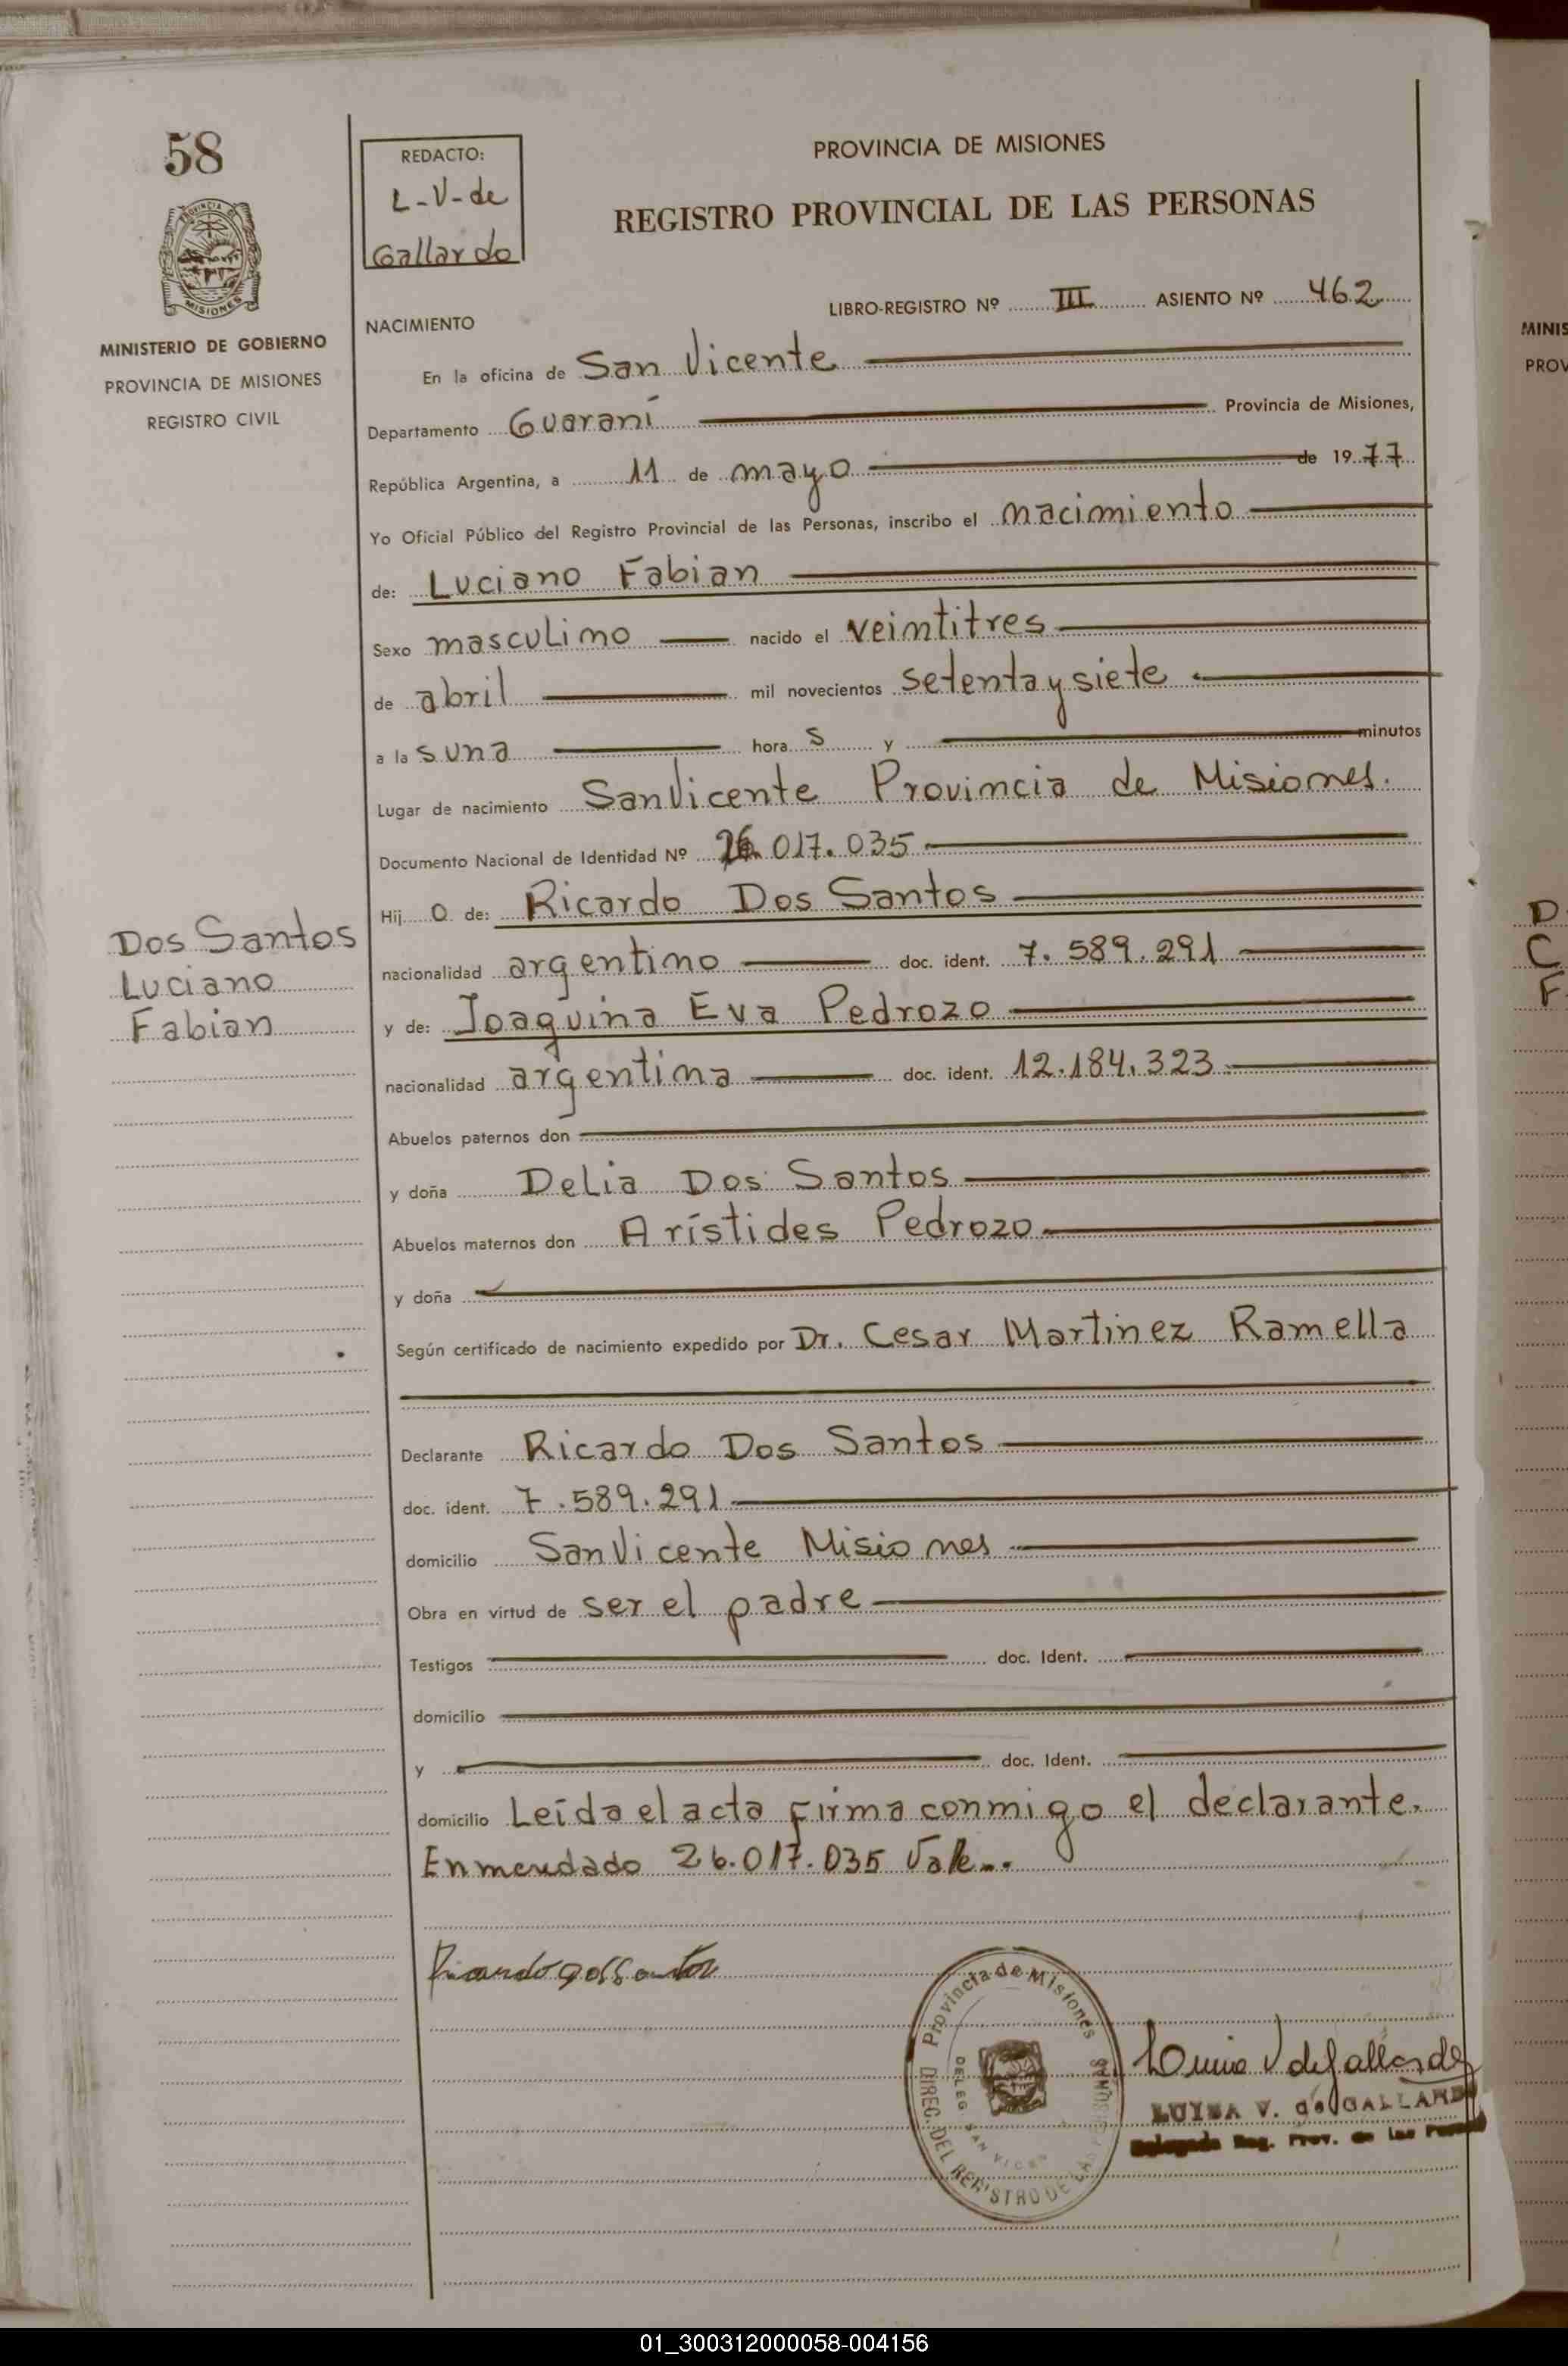 58
REDACTO:
L-V-de
Gallardo
PROVINCIA DE MISIONES
REGISTRO PROVINCIAL DE LAS PERSONAS
PROVINCIA DE
MISIONES
MINISTERIO DE GOBIERNO
PROVINCIA DE MISIONES
REGISTRO CIVIL
LIBRO-REGISTRO Nº III ASIENTO Nº 462
NACIMIENTO
En la oficina de San Vicente
Departamento Guaraní Provincia de Misiones,
República Argentina, a 11 de mayo de 1977
Yo Oficial Público del Registro Provincial de las Personas, inscribo el nacimiento
de: Luciano Fabian
Sexo masculino nacido el veintitres
de abril mil novecientos setenta y siete
a las una hora s y minutos
Lugar de nacimiento San Vicente Provincia de Misiones.
Documento Nacional de Identidad Nº 26.017.035
Hijo de: Ricardo Dos Santos
Dos Santos
Luciano
Fabian
nacionalidad argentino doc. ident. 7.589.291
y de: Joaquina Eva Pedrozo
nacionalidad argentina doc. ident. 12.184.323
Abuelos paternos don
y doña Delia Dos Santos
Abuelos maternos don Arístides Pedrozo
y doña
Según certificado de nacimiento expedido por Dr. Cesar Martinez Ramella
Declarante Ricardo Dos Santos
doc. ident. 7.589.291
domicilio San Vicente Misiones
Obra en virtud de ser el padre
Testigos doc. Ident.
domicilio
y doc. Ident.
domicilio Leída el acta firma conmigo el declarante.
Enmendado 26.017.035 Vale..
Ricardo dos Santos
Provincia de Misiones
DIREC. DEL REGISTRO DE LAS PERSONAS
DELEG. SAN VICEN
Luisa V de Gallardo
LUISA V. de GALLARDO
Delegada Reg. Prov. de las Person
MINIS
PROV
D
C
F
01_300312000058-004156